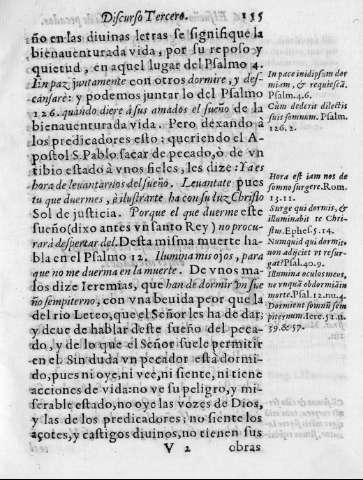 Discurso Tercero. 155
ño en las diuinas letras se significa la
bienauenturada vida, por su reposo y
quietud, en aquel lugar del Psalmo 4.
En paz, juntamente con otros dormire, y des-
cansarè: y podemos juntar lo del Psalmo
126. quando diere â sus amados el sueño de la
bienauenturada vida. Pero dexando à
los predicadores esto: queriendo el A-
postol S. Pablo sacar de pecado, ò de vn
tibio estado à vnos fieles, les dize: Ya es
hora de leuantarnos del sueño. Leuantate pues
tu que duermes, è ilustrarte ha con su luz Christo
Sol de justicia. Porque el que duerme este
sueño (dixo antes vn santo Rey) no procu-
rarà despertar del. Desta misma muerte ha-
bla en el Psalmo 12. Ilumina mis ojos, para
que no me duerma en la muerte. De vnos ma-
los dize Ieremias, que han de dormir vn sue
ño sempiterno, con vna beuida peor que la
del rio Leteo, que el Señor les ha de dar;
y deue de hablar deste sueño del peca-
do, y de lo que el Señor suele permitir
en el. Sin duda vn pecador està dormi-
do, pues ni oye, ni vee, ni siente, ni tiene
acciones de vida: no ve su peligro, y mi-
serable estado, no oye las vozes de Dios,
y las de los predicadores; no siente los
açotes, y castigos diuinos, no tienen sus
V 2 obras
In pace in idipsum dor
miam, & requiescã.
Psalm. 4. 6.
Cùm dederit dilectis
suis somnum. Psalm.
126. 2.
Hora est iam nos de
somno surgere. Rom.
13. 11.
Surge qui dormis, &
illuminabit te Chri-
stus. Ephes. 5. 14.
Numquid qui dormit,
non adjciet vt resur-
gat? Psal. 40. 9.
Illumina oculos meos,
ne vnquã obdormiã in
morte. Psal. 12. nu. 4
Dormient somnũ sem
piternum. Iere. 51. n.
39. & 57.